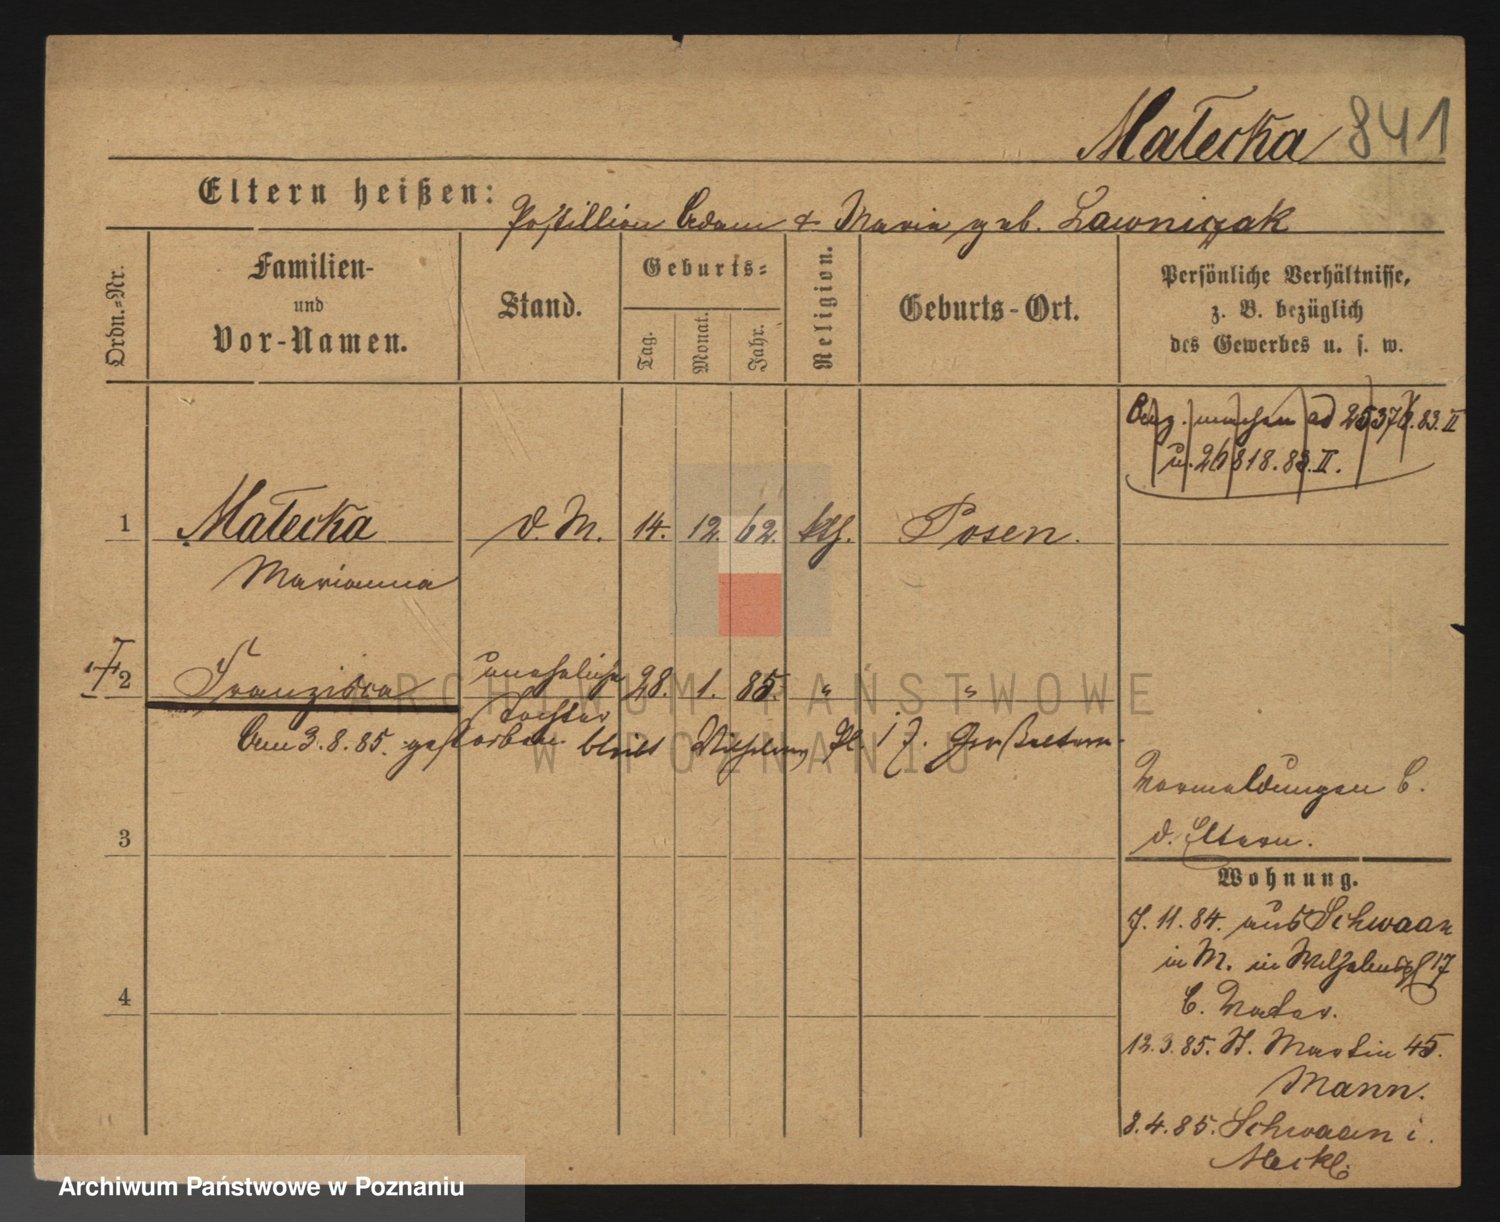 Małecka 841
Eltern heißen: Postillion Adam & Maria geb. Lawniczak
Ordn.-Nr.
Familien-
und
Vor-Namen.
Stand.
Geburts-
Tag.
Monat.
Jahr.
Religion.
Geburts-Ort.
Persönliche Verhältnisse,
z. B. bezüglich
des Gewerbes u. s. w.
machen ad 25376.83.II
u. 26818.83.II.
1 Małecka d. M. 14. 12. 62. kth. Posen.
Marianna
† 2 Franziska uneheliche 28. 1. 85. " "
Tochter
Am 3.8.85. gestorben. bleibt Wilhelms Pl. 17. Großeltern.
Vermeldungen b.
d. Eltern.
3
Wohnung.
7.11.84. aus Schwaan
in M. in Wilhelmspl 17
b. Vater.
4
12.3.85. St. Martin 45.
Mann.
8.4.85. Schwaan i.
Meckl.
ARCHIWUM PAŃSTWOWE
W POZNANIU
Archiwum Państwowe w Poznaniu